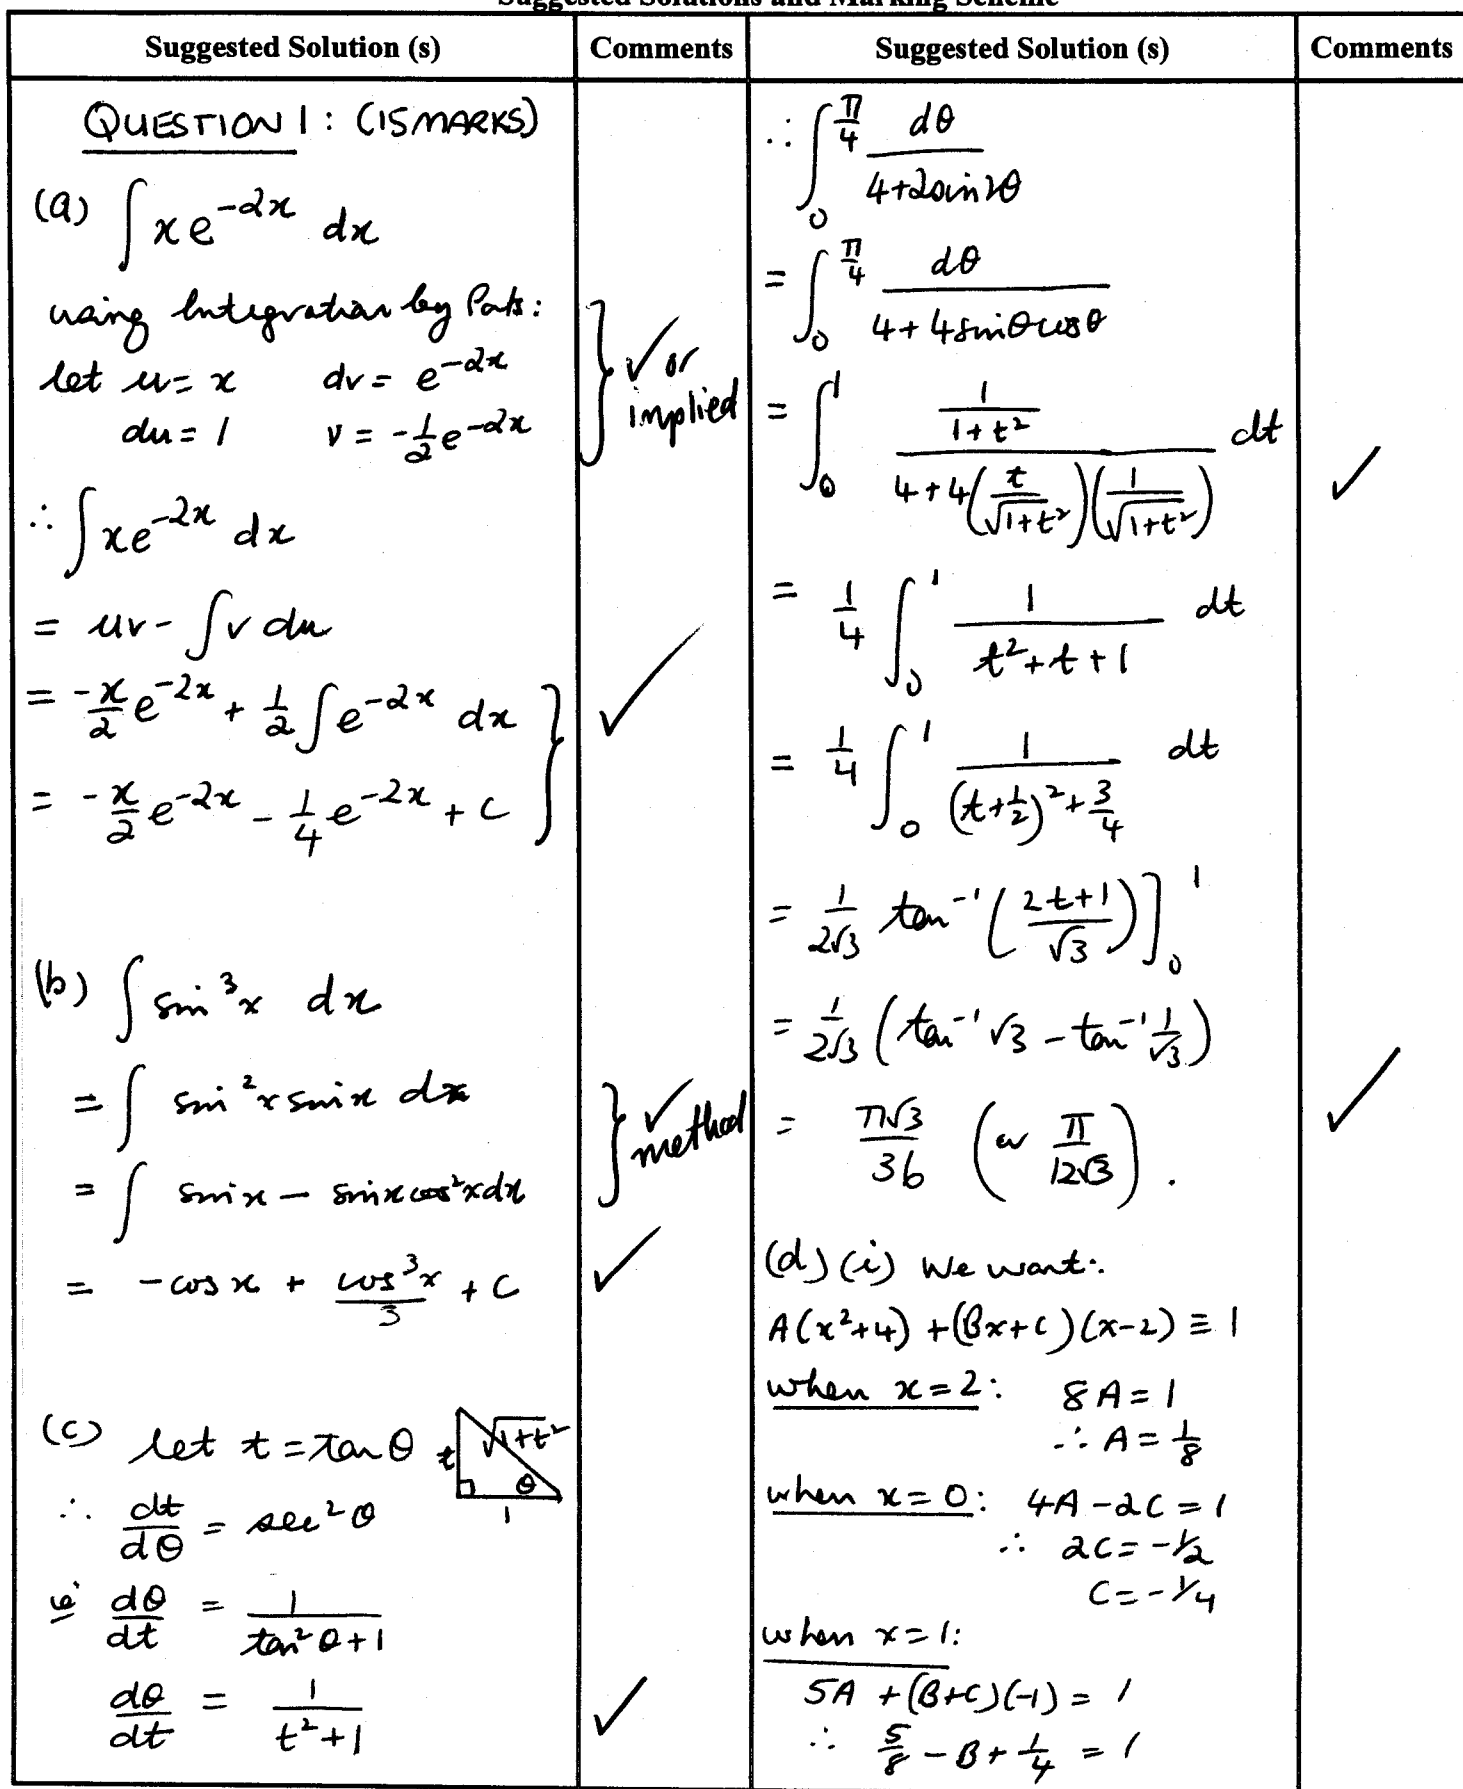 Suggested Solutions and Marking Scheme
Suggested Solution (s)
Comments
Suggested Solution (s)
Comments
QUESTION 1: (15 MARKS)
(a) ∫ xe^{-2x} dx
using Integration by Parts:
let u = x    dv = e^{-2x}
du = 1    v = -\frac{1}{2}e^{-2x}
✓ or
implied
∴ ∫ xe^{-2x} dx
= uv - ∫ v du
= -\frac{x}{2}e^{-2x} + \frac{1}{2} ∫ e^{-2x} dx
✓
= -\frac{x}{2}e^{-2x} - \frac{1}{4}e^{-2x} + C
(b) ∫ sin³x dx
= ∫ sin²x sin x dx
✓
method
= ∫ sin x - sin x cos²x dx
= -cos x + \frac{cos³x}{3} + C
✓
(c) let t = tan θ
t √1+t² θ 1
∴ \frac{dt}{dθ} = sec²θ
ie \frac{dθ}{dt} = \frac{1}{tan²θ+1}
\frac{dθ}{dt} = \frac{1}{t²+1}
✓
∴ ∫_0^{\frac{π}{4}} \frac{dθ}{4+2sin2θ}
= ∫_0^{\frac{π}{4}} \frac{dθ}{4+4sinθcosθ}
= ∫_0^1 \frac{\frac{1}{1+t²}}{4+4(\frac{t}{\sqrt{1+t²}})(\frac{1}{\sqrt{1+t²}})} dt
✓
= \frac{1}{4} ∫_0^1 \frac{1}{t²+t+1} dt
= \frac{1}{4} ∫_0^1 \frac{1}{(t+\frac{1}{2})²+\frac{3}{4}} dt
= \frac{1}{2√3} tan^{-1}(\frac{2t+1}{√3})]_0^1
= \frac{1}{2√3} (tan^{-1}√3 - tan^{-1}\frac{1}{√3})
= \frac{π√3}{36} (or \frac{π}{12√3}).
✓
(d) (i) We want:
A(x²+4) + (Bx+C)(x-2) ≡ 1
when x=2: 8A = 1
∴ A = \frac{1}{8}
when x=0: 4A - 2C = 1
∴ 2C = -½
C = -¼
when x=1:
5A + (B+C)(-1) = 1
∴ \frac{5}{8} - B + \frac{1}{4} = 1